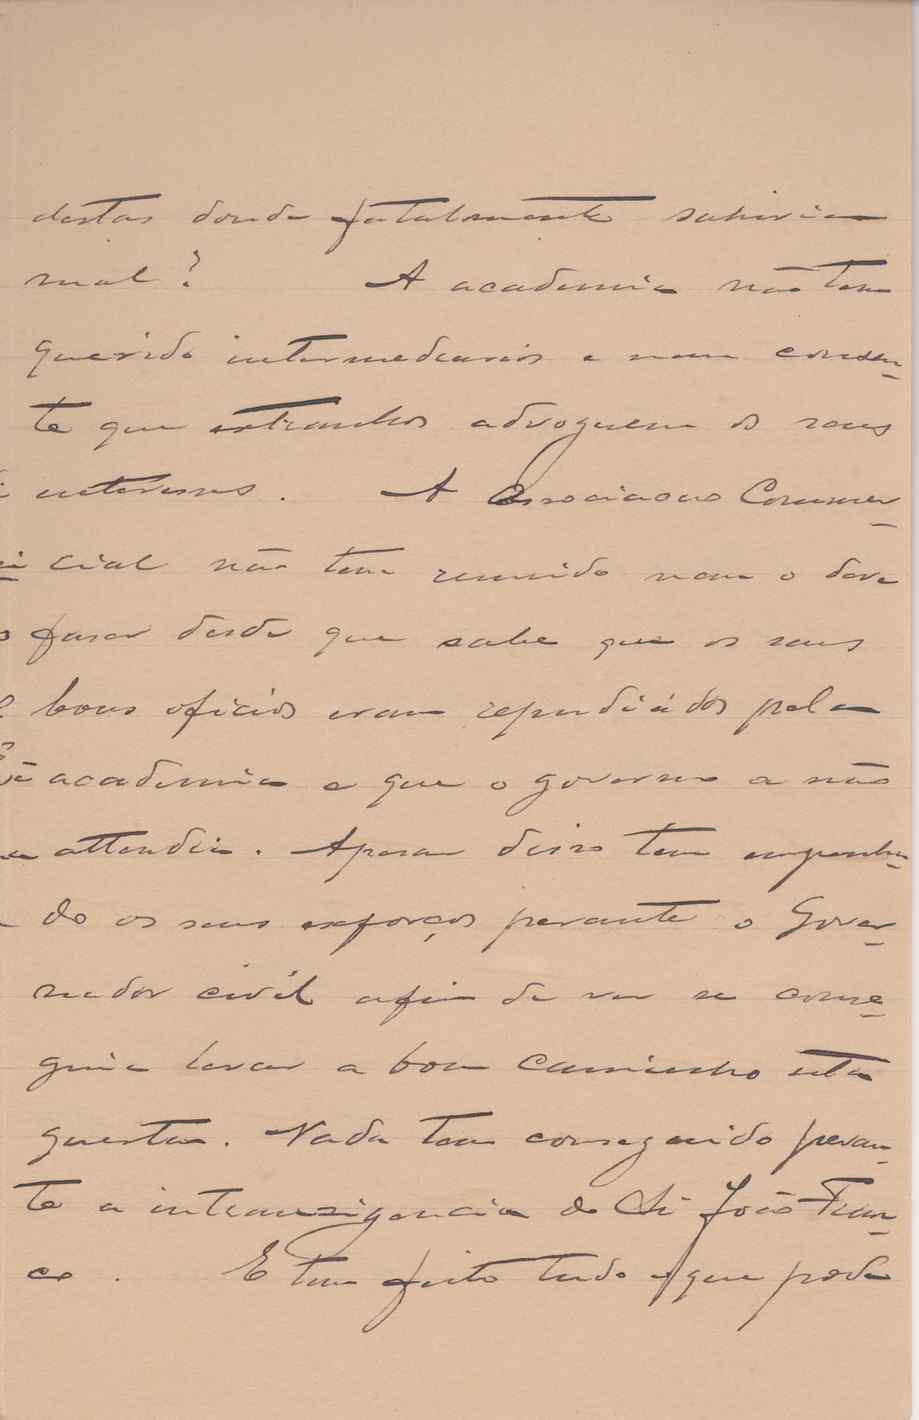 destas donde fatalmente sahiria
mal? A academia não tem
querido intermediarios e nem consen-
te que extranhos advoguem os seus
interesses. A Associacao Commer-
cial não tem reunido nem o deve
faser desde que sabe que os seus
bons oficios eram repudiádos pela
academia e que o governo a não
attendia. Apesar disso tem empenha-
do os seus exforços perante o Gover-
nador civil afim de ver se conse-
guia levar a bom caminho esta
questao. Nada tem conseguido peran-
te a intransigencia do Sr João Fran-
co. E tem feito tudo o que pode